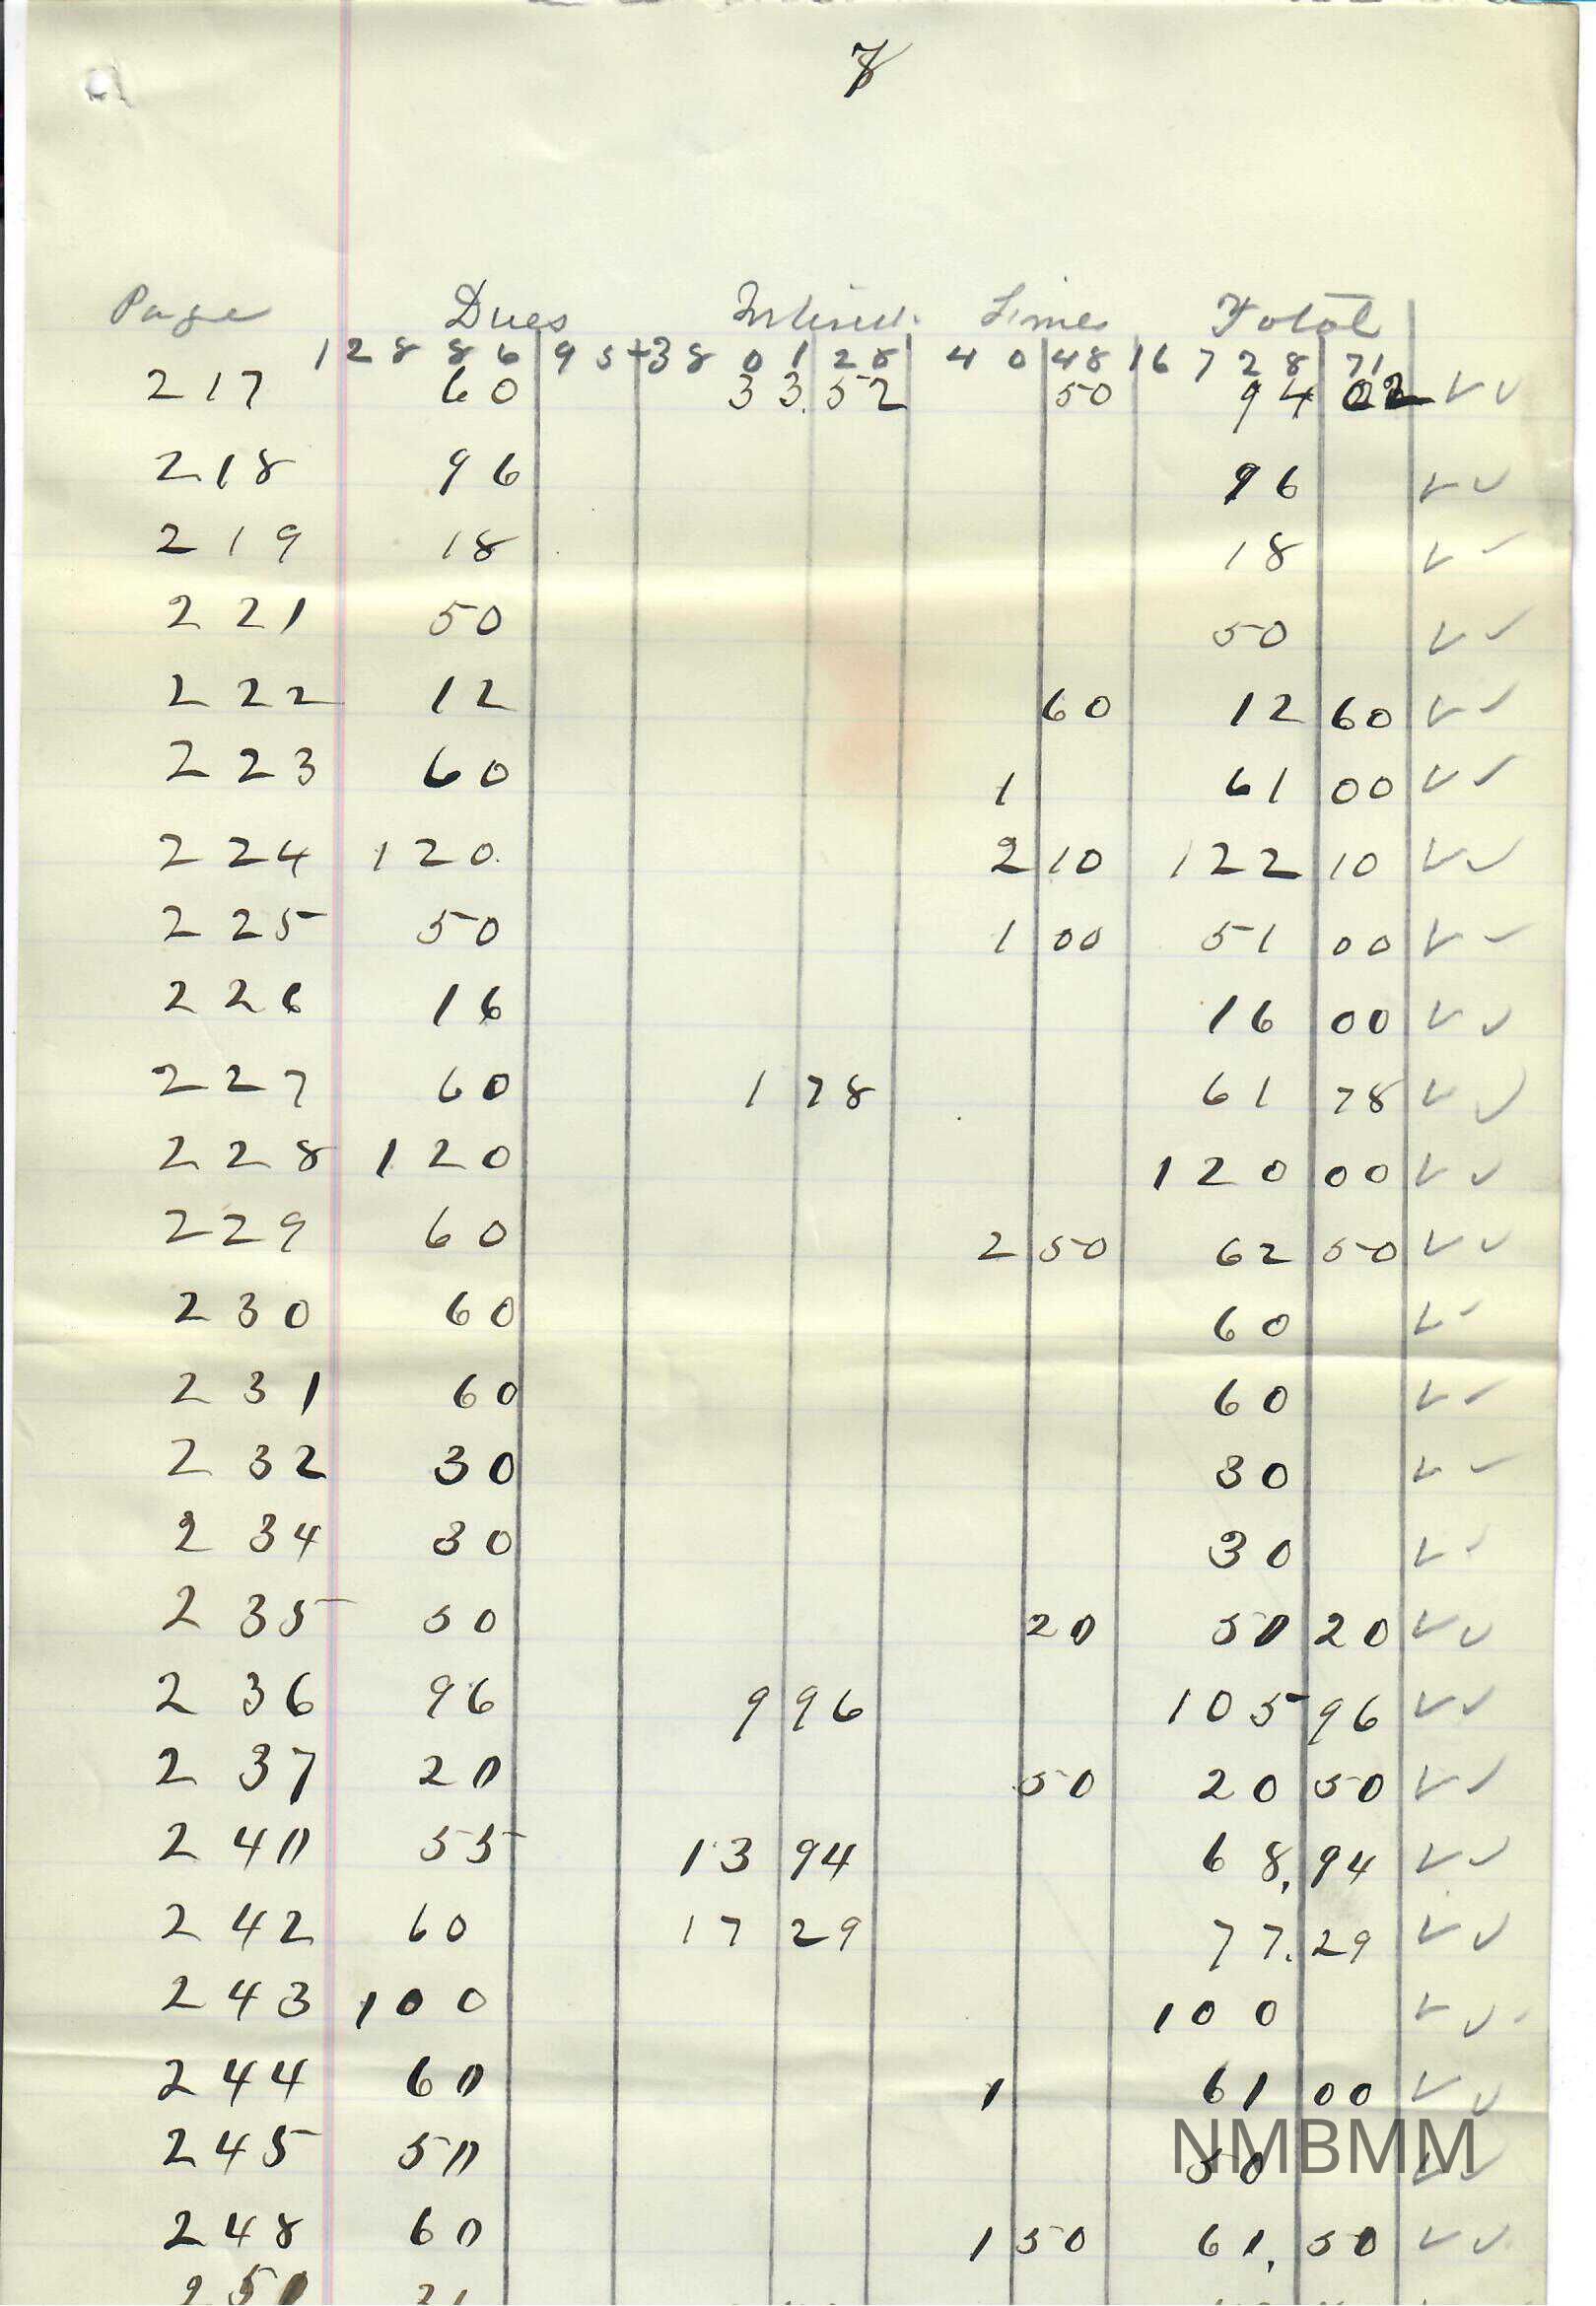 7
Page Dues Interest Fines Total
12886 95 3801 28 40 48 16728 71
217 60 33.52 50 94 02 ✓✓
218 96 96 ✓✓
219 18 18 ✓✓
221 50 50 ✓✓
222 12 60 12 60 ✓✓
223 60 1 61 00 ✓✓
224 120 2 10 122 10 ✓✓
225 50 1 00 51 00 ✓✓
226 16 16 00 ✓✓
227 60 1 78 61 78 ✓✓
228 120 120 00 ✓✓
229 60 2 50 62 50 ✓✓
230 60 60 ✓✓
231 60 60 ✓✓
232 30 30 ✓✓
234 30 30 ✓✓
235 50 20 50 20 ✓✓
236 96 9 96 105 96 ✓✓
237 20 50 20 50 ✓✓
240 55 13 94 68.94 ✓✓
242 60 17 29 77.29 ✓✓
243 100 100 ✓✓
244 60 1 61 00 ✓✓
245 50 50 ✓✓
NMBMM
248 60 1 50 61.50 ✓✓
250